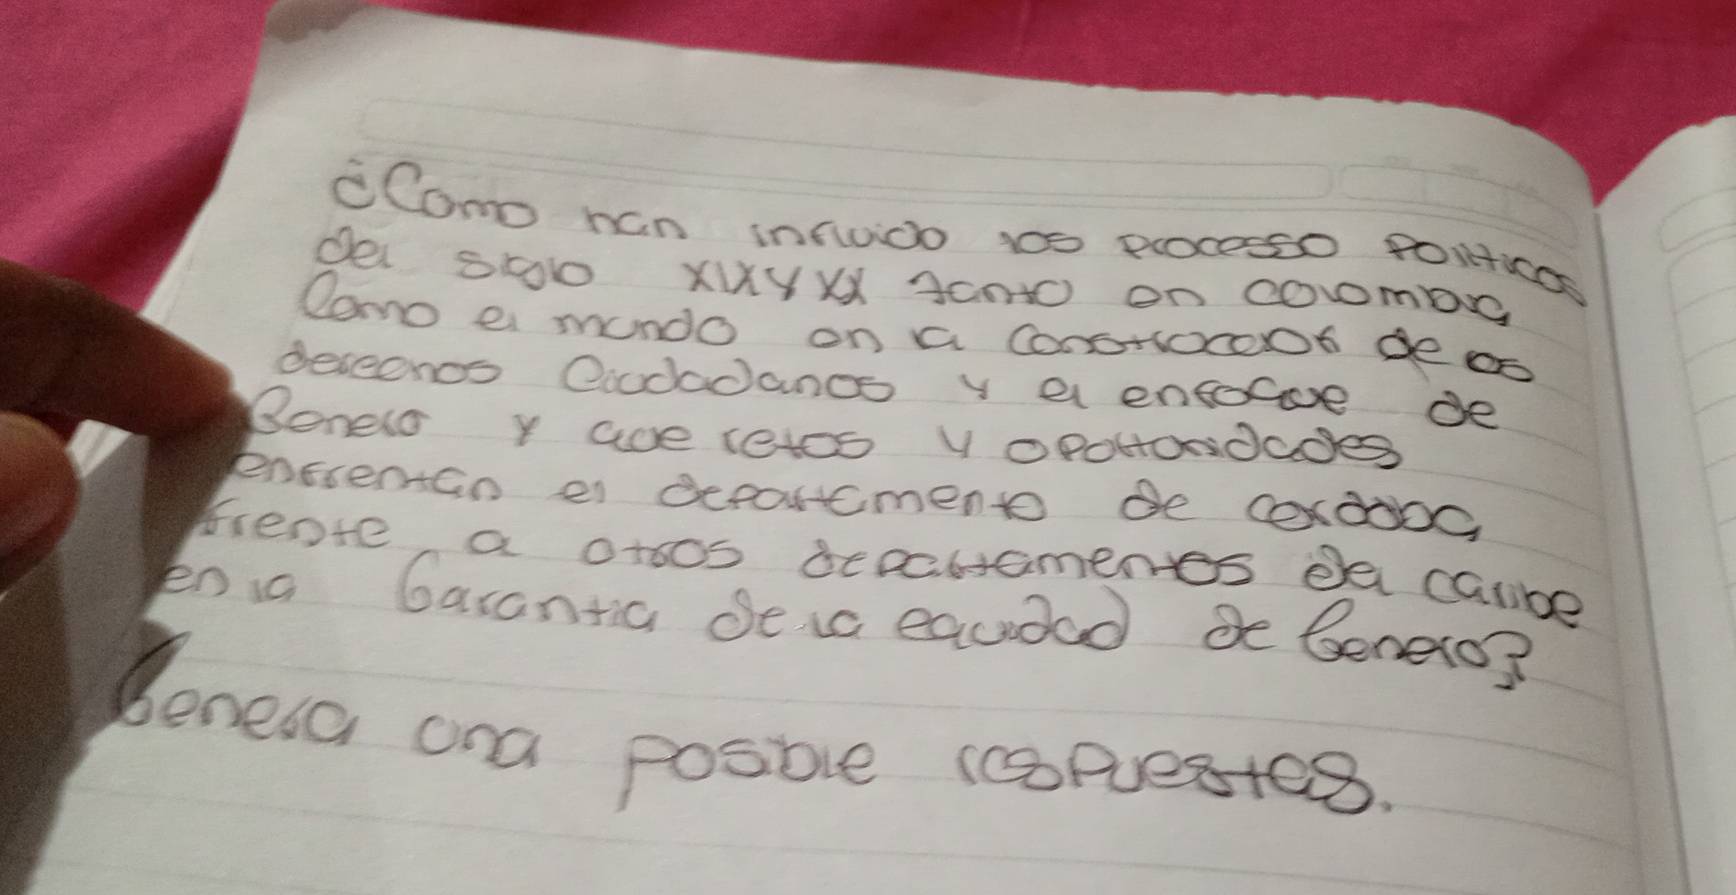 ¿Como han influido los processo Politicos
del siglo XIX y XX tanto en colombia
Como el mundo en la construccion de los
derechos Ciudadanos y el enfoque de
Genero y que retos y oportunidades
enfrentan el departamento de cordoba
frente a otros departamentos del caribe
en la Garantia de la equidad de Genero?
Genera una posible respuestas.